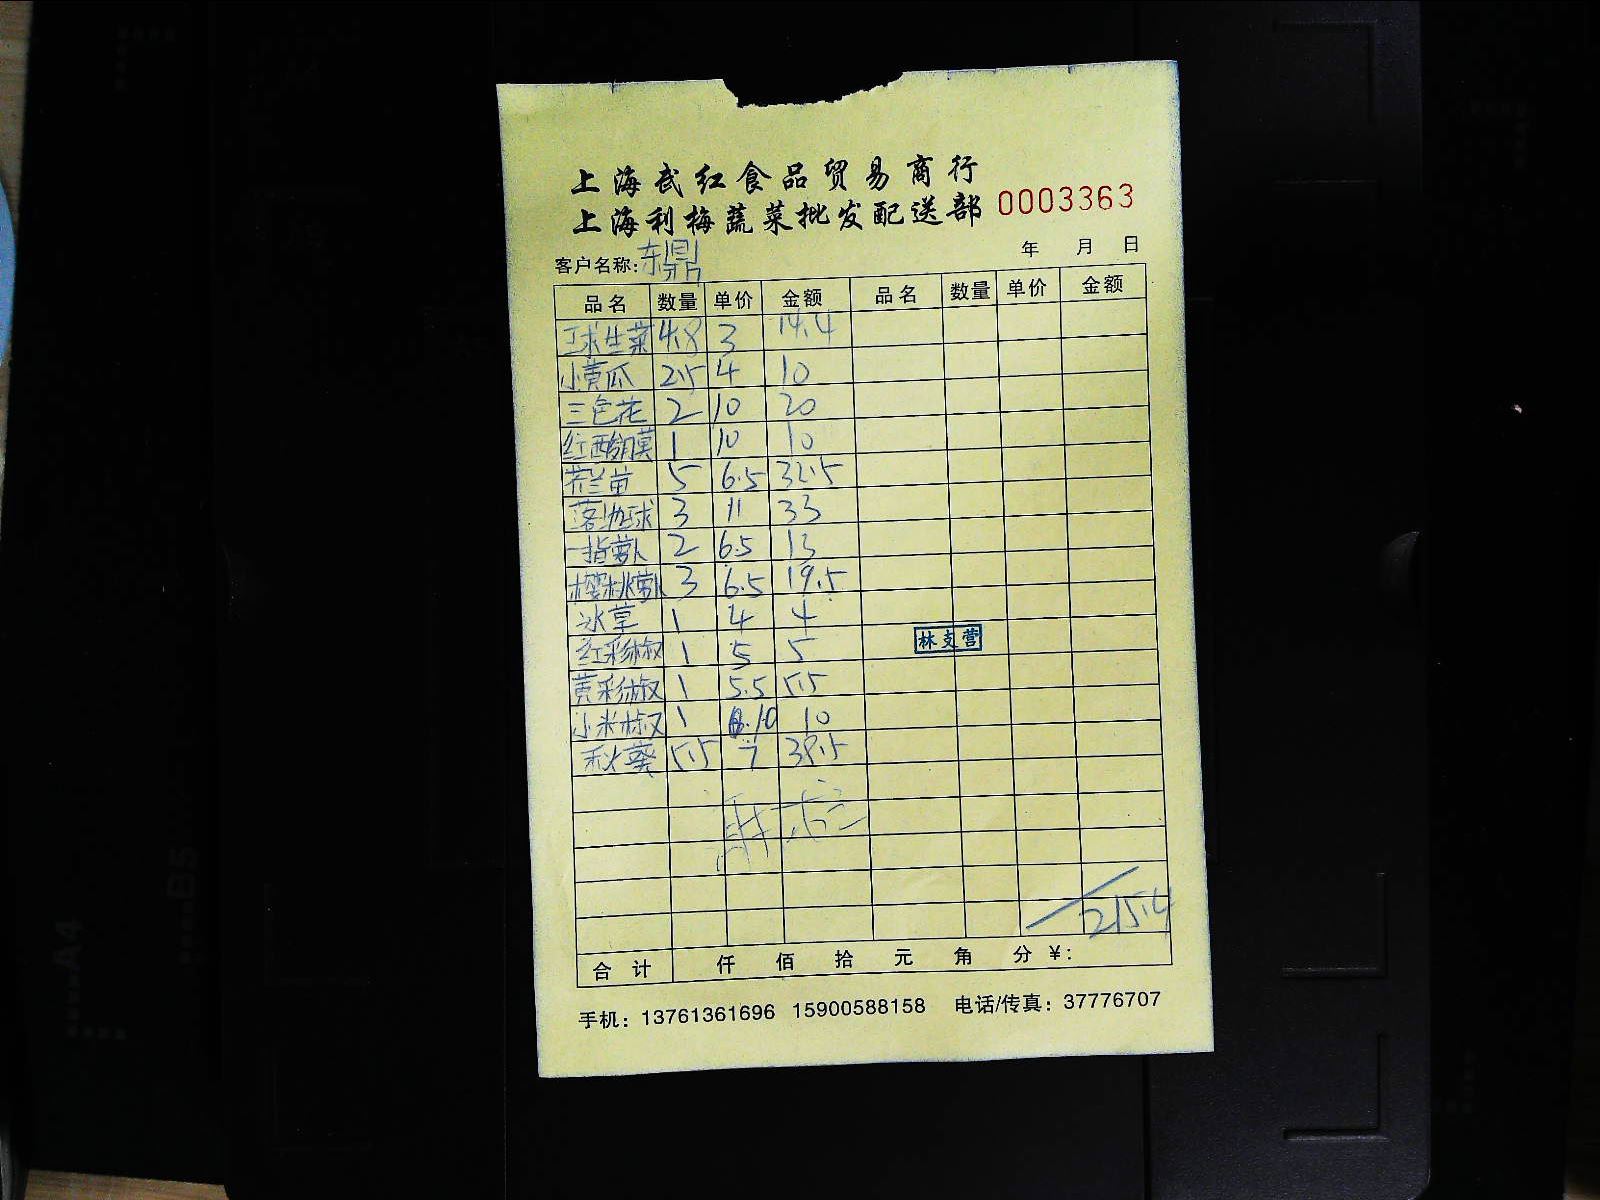 上海武红食品贸易商行
上海利梅蔬菜批发配送部 0003363
客户名称:东鼎 年 月 日
品名 数量 单价 金额 品名 数量 单价 金额
球生菜 4.8 3 14.4
小黄瓜 2.5 4 10
三色花 2 10 20
红酸膜 1 10 10
芥兰苗 5 6.5 32.5
球 3 11 33
一指萝卜 2 6.5 13
樱桃萝卜 3 6.5 19.5
冰草 1 4 4
红彩椒 1 5 5
林支营
黄彩椒 1 5.5 5.5
小米椒 1 10 10
秋葵 5.5 7 38.5
215.4
合计 仟 佰 拾 元 角 分 ¥:
手机: 13761361696 15900588158 电话/传真: 37776707
A4
B5